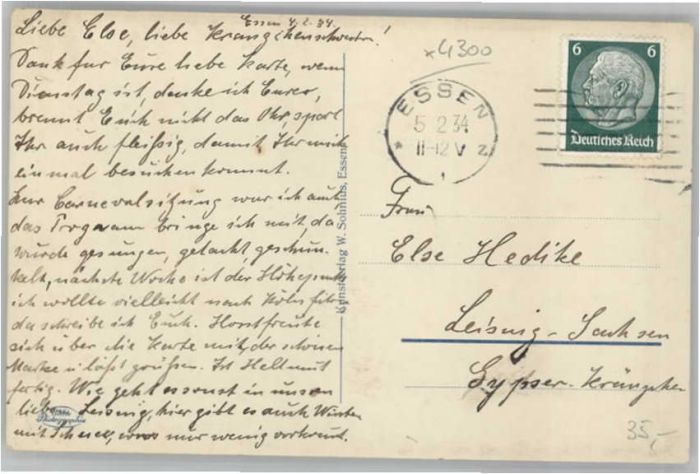 Essen 4.2.34.
Liebe Else, liebe Kränzchenschwestern!
Dank für Eure liebe Karte, wenn
Dienstag ist, denke ich Eurer,
brennt Euch nicht das Ohr, spart
Ihr auch fleißig, damit Ihr mich
einmal besuchen kommt.
Zur Carnevalsitzung war ich auch
das Programm bringe ich mit, da
wurde gesungen, gelacht, geschun-
kelt, nächste Woche ist der Höhepunkt
ich wollte vielleicht nach Köln fahren
da schreibe ich Euch. Horst freute
sich über die Karte mit der schönen
Marke u. läßt grüßen. Ist Hellmut
fertig. Wie geht es sonst in unsrem
lieben Leisnig, hier gibt es auch Winter
mit Schnee, nur wenig
Kunstverlag W. Sohnius, Essen
x4300
ESSEN
5 2 34
11-12 V
* 2
6 6
Deutsches Reich
Frau
Else Hedike
Leisnig-Sachsen
35,-